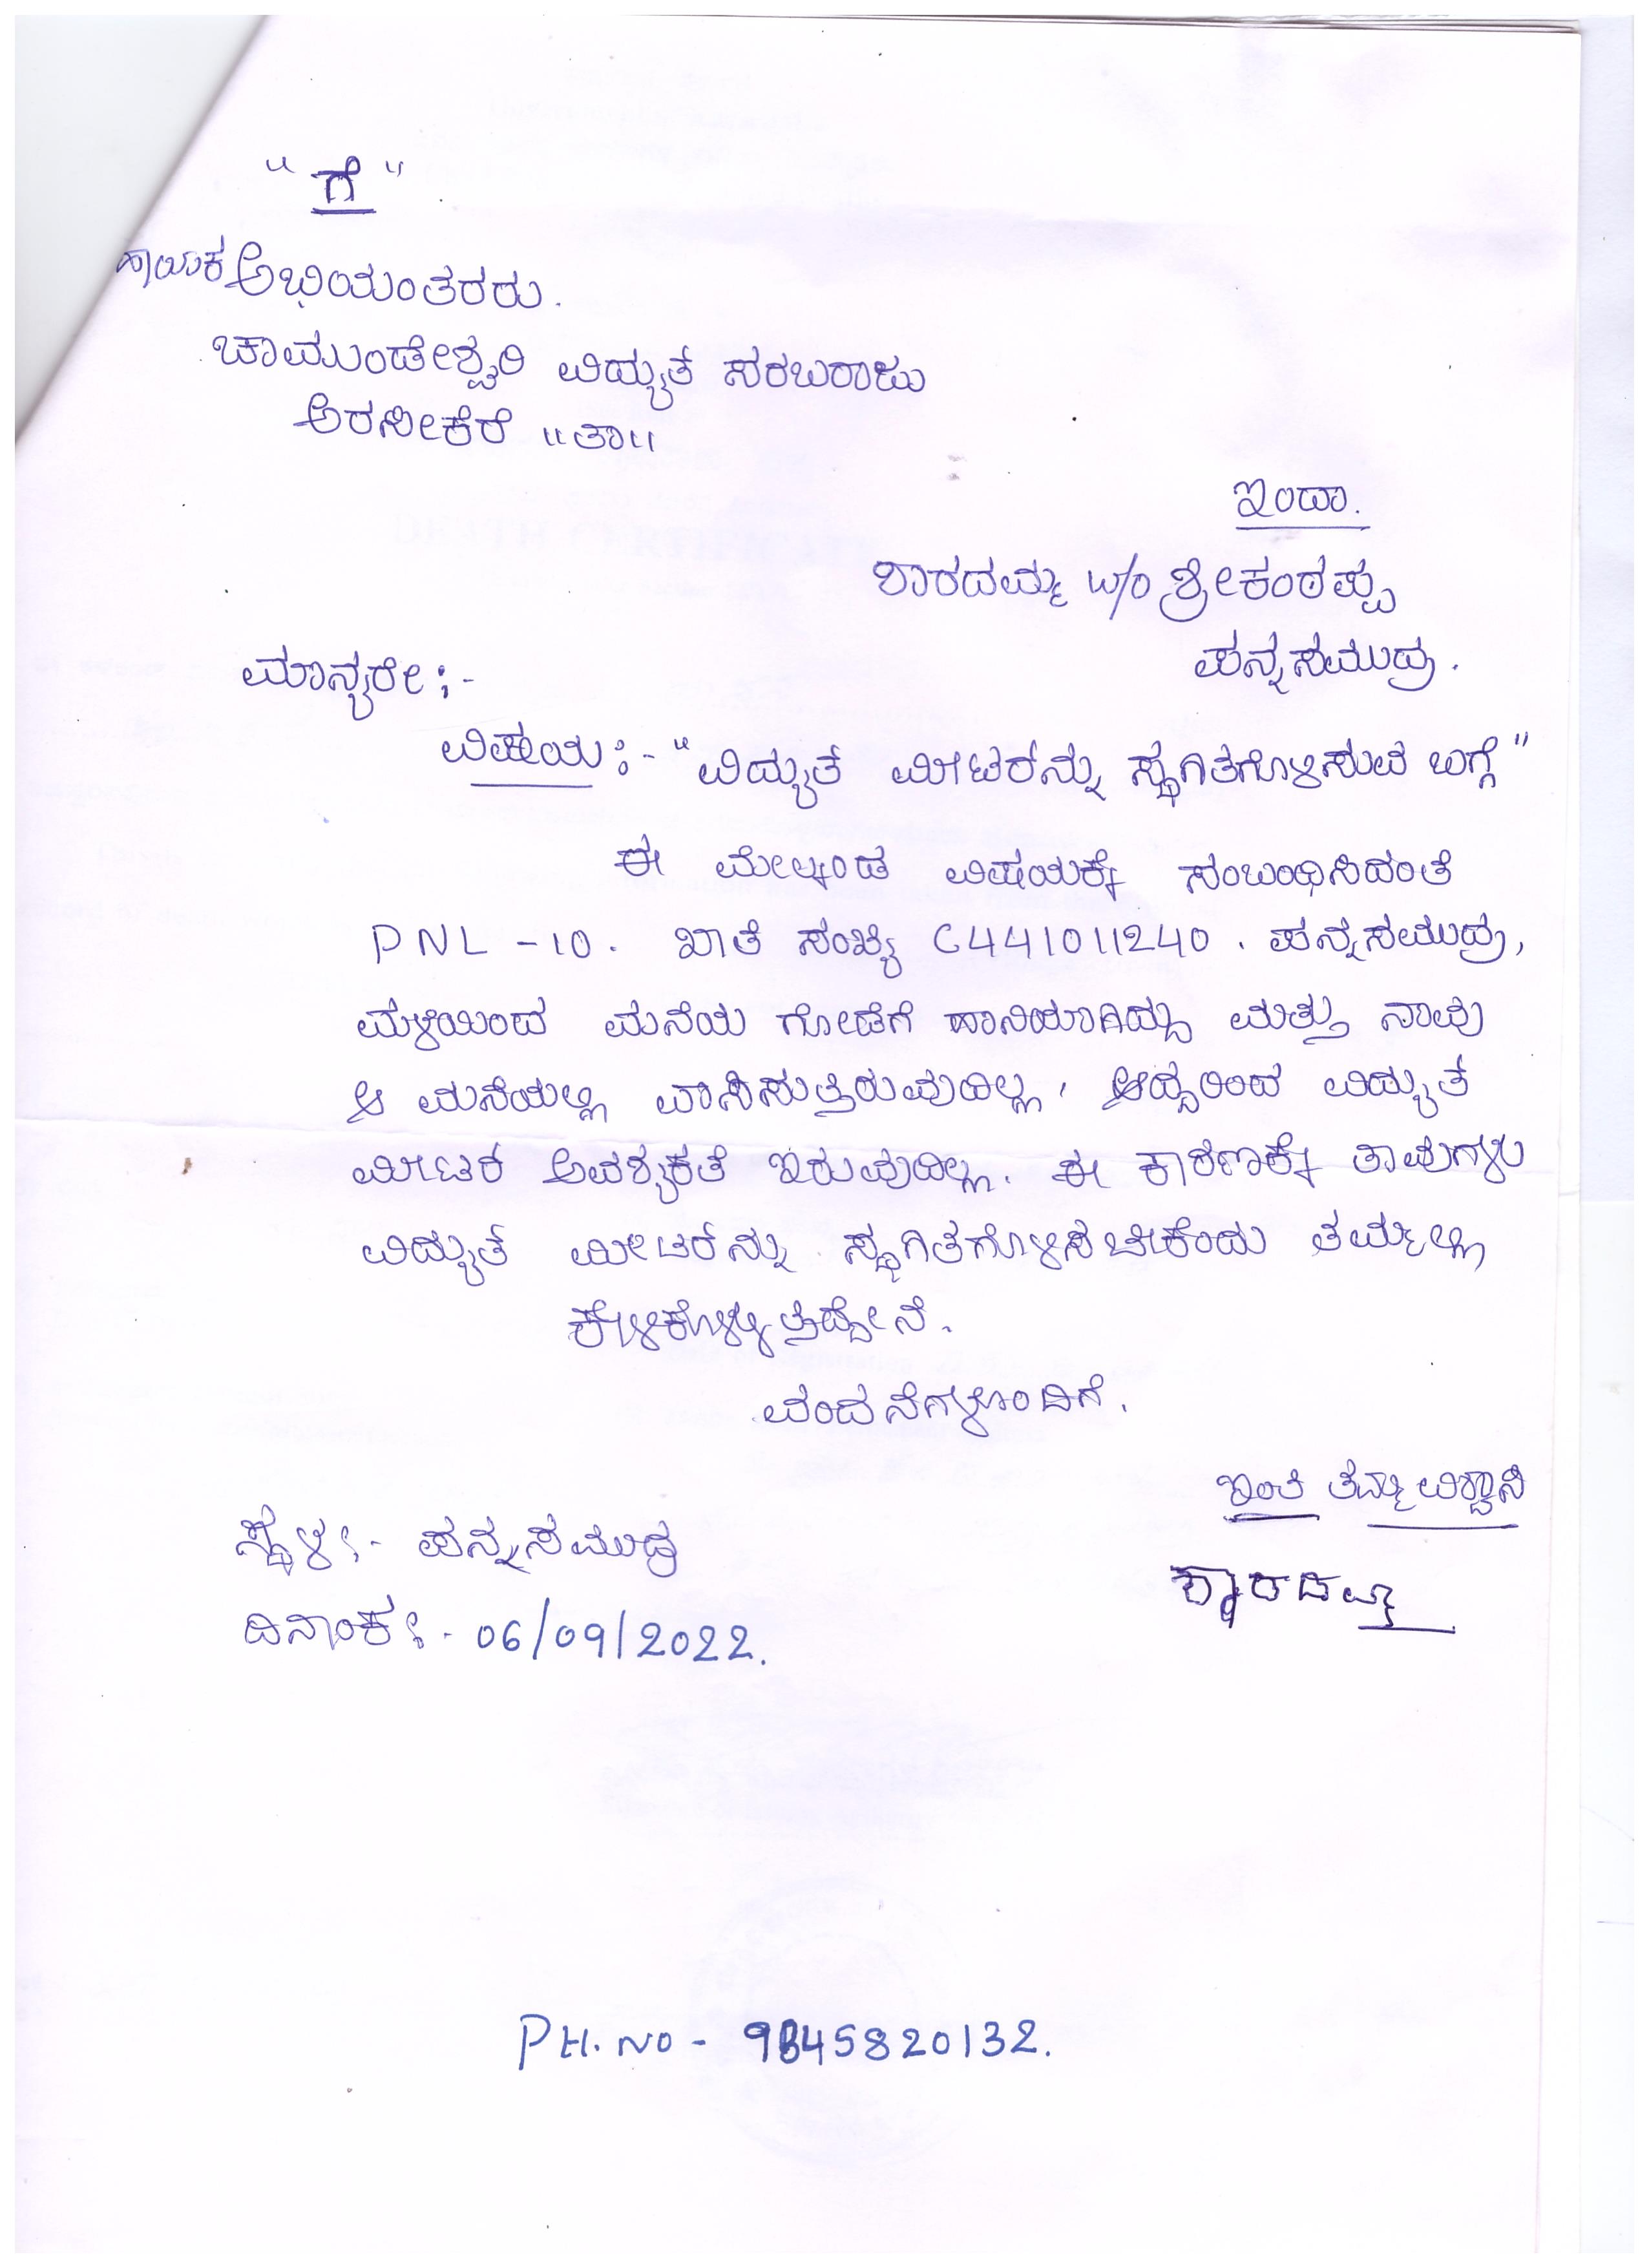 " ಗೆ "
ಹಾಯಕ ಅಭಿಯಂತರರು.
ಚಾಮುಂಡೇಶ್ವರಿ ವಿದ್ಯುತ್ ಸರಬರಾಜು
ಅರಸೀಕೆರೆ "ತಾ"
ಇಂದಾ.
ಶಾರದಮ್ಮ w/o ಶ್ರೀಕಂಠಪ್ಪ
ಪನ್ನಸಮುದ್ರ.
ಮಾನ್ಯರೇ ;-
ವಿಷಯ :- " ವಿದ್ಯುತ್ ಮೀಟರ್‌ನ್ನು ಸ್ಥಗಿತಗೊಳಿಸುವ ಬಗ್ಗೆ "
ಈ ಮೇಲ್ಕಂಡ ವಿಷಯಕ್ಕೆ ಸಂಬಂಧಿಸಿದಂತೆ
PNL -10. ಖಾತೆ ಸಂಖ್ಯೆ C441011240. ಪನ್ನಸಮುದ್ರ,
ಮಳೆಯಿಂದ ಮನೆಯ ಗೋಡೆಗೆ ಹಾನಿಯಾಗಿದ್ದು ಮತ್ತು ನಾವು
ಆ ಮನೆಯಲ್ಲಿ ವಾಸಿಸುತ್ತಿರುವುದಿಲ್ಲ, ಆದ್ದರಿಂದ ವಿದ್ಯುತ್
ಮೀಟರ್ ಅವಶ್ಯಕತೆ ಇರುವುದಿಲ್ಲ. ಈ ಕಾರಣಕ್ಕೆ ತಾವುಗಳು
ವಿದ್ಯುತ್ ಮೀಟರ್‌ನ್ನು ಸ್ಥಗಿತಗೊಳಿಸಬೇಕೆಂದು ತಮ್ಮಲ್ಲಿ
ಕೇಳಿಕೊಳ್ಳುತ್ತಿದ್ದೇನೆ.
ವಂದನೆಗಳೊಂದಿಗೆ.
ಇಂತಿ ತಮ್ಮ ವಿಶ್ವಾಸಿ
ಸ್ಥಳ :- ಪನ್ನಸಮುದ್ರ
ಶಾರದಮ್ಮ
ದಿನಾಂಕ :- 06/09/2022.
PH.NO - 9845820132.